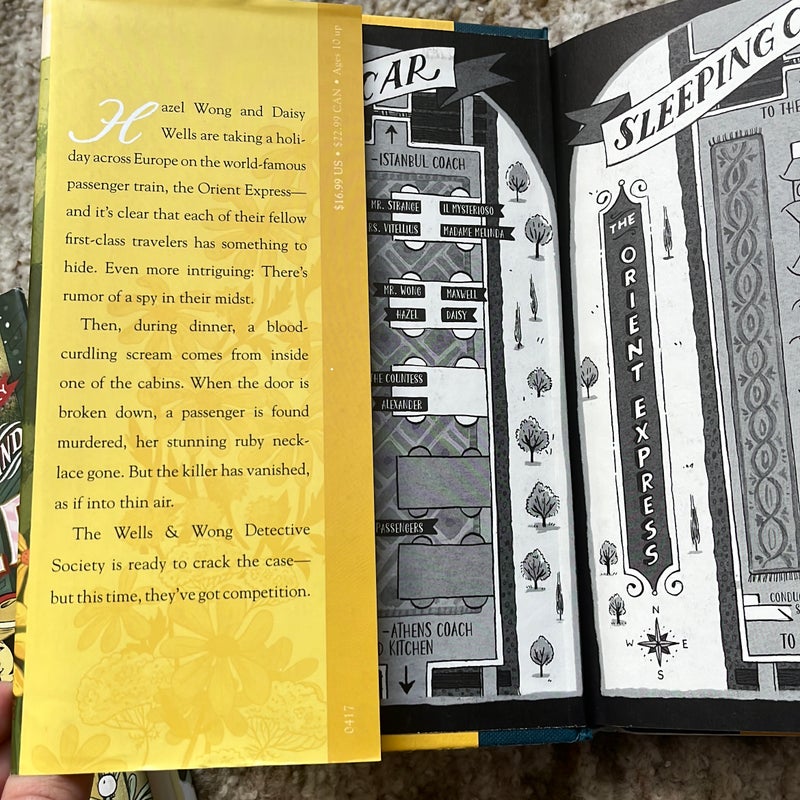 Hazel Wong and Daisy
Wells are taking a holi-
day across Europe on the world-famous
passenger train, the Orient Express—
and it's clear that each of their fellow
first-class travelers has something to
hide. Even more intriguing: There's
rumor of a spy in their midst.
Then, during dinner, a blood-
curdling scream comes from inside
one of the cabins. When the door is
broken down, a passenger is found
murdered, her stunning ruby neck-
lace gone. But the killer has vanished,
as if into thin air.
The Wells & Wong Detective
Society is ready to crack the case—
but this time, they've got competition.
$16.99 US • $22.99 CAN • Ages 10 up
0417
CAR
-ISTANBUL COACH
MR. STRANGE
IL MYSTERIOSO
RS. VITELLIUS
MADAME MELINDA
MR. WONG
MAXWELL
HAZEL
DAISY
HE COUNTESS
ALEXANDER
PASSENGERS
-ATHENS COACH
D KITCHEN
SLEEPING C
TO THE
THE ORIENT EXPRESS
N
W E
S
CONDUC
S
TO